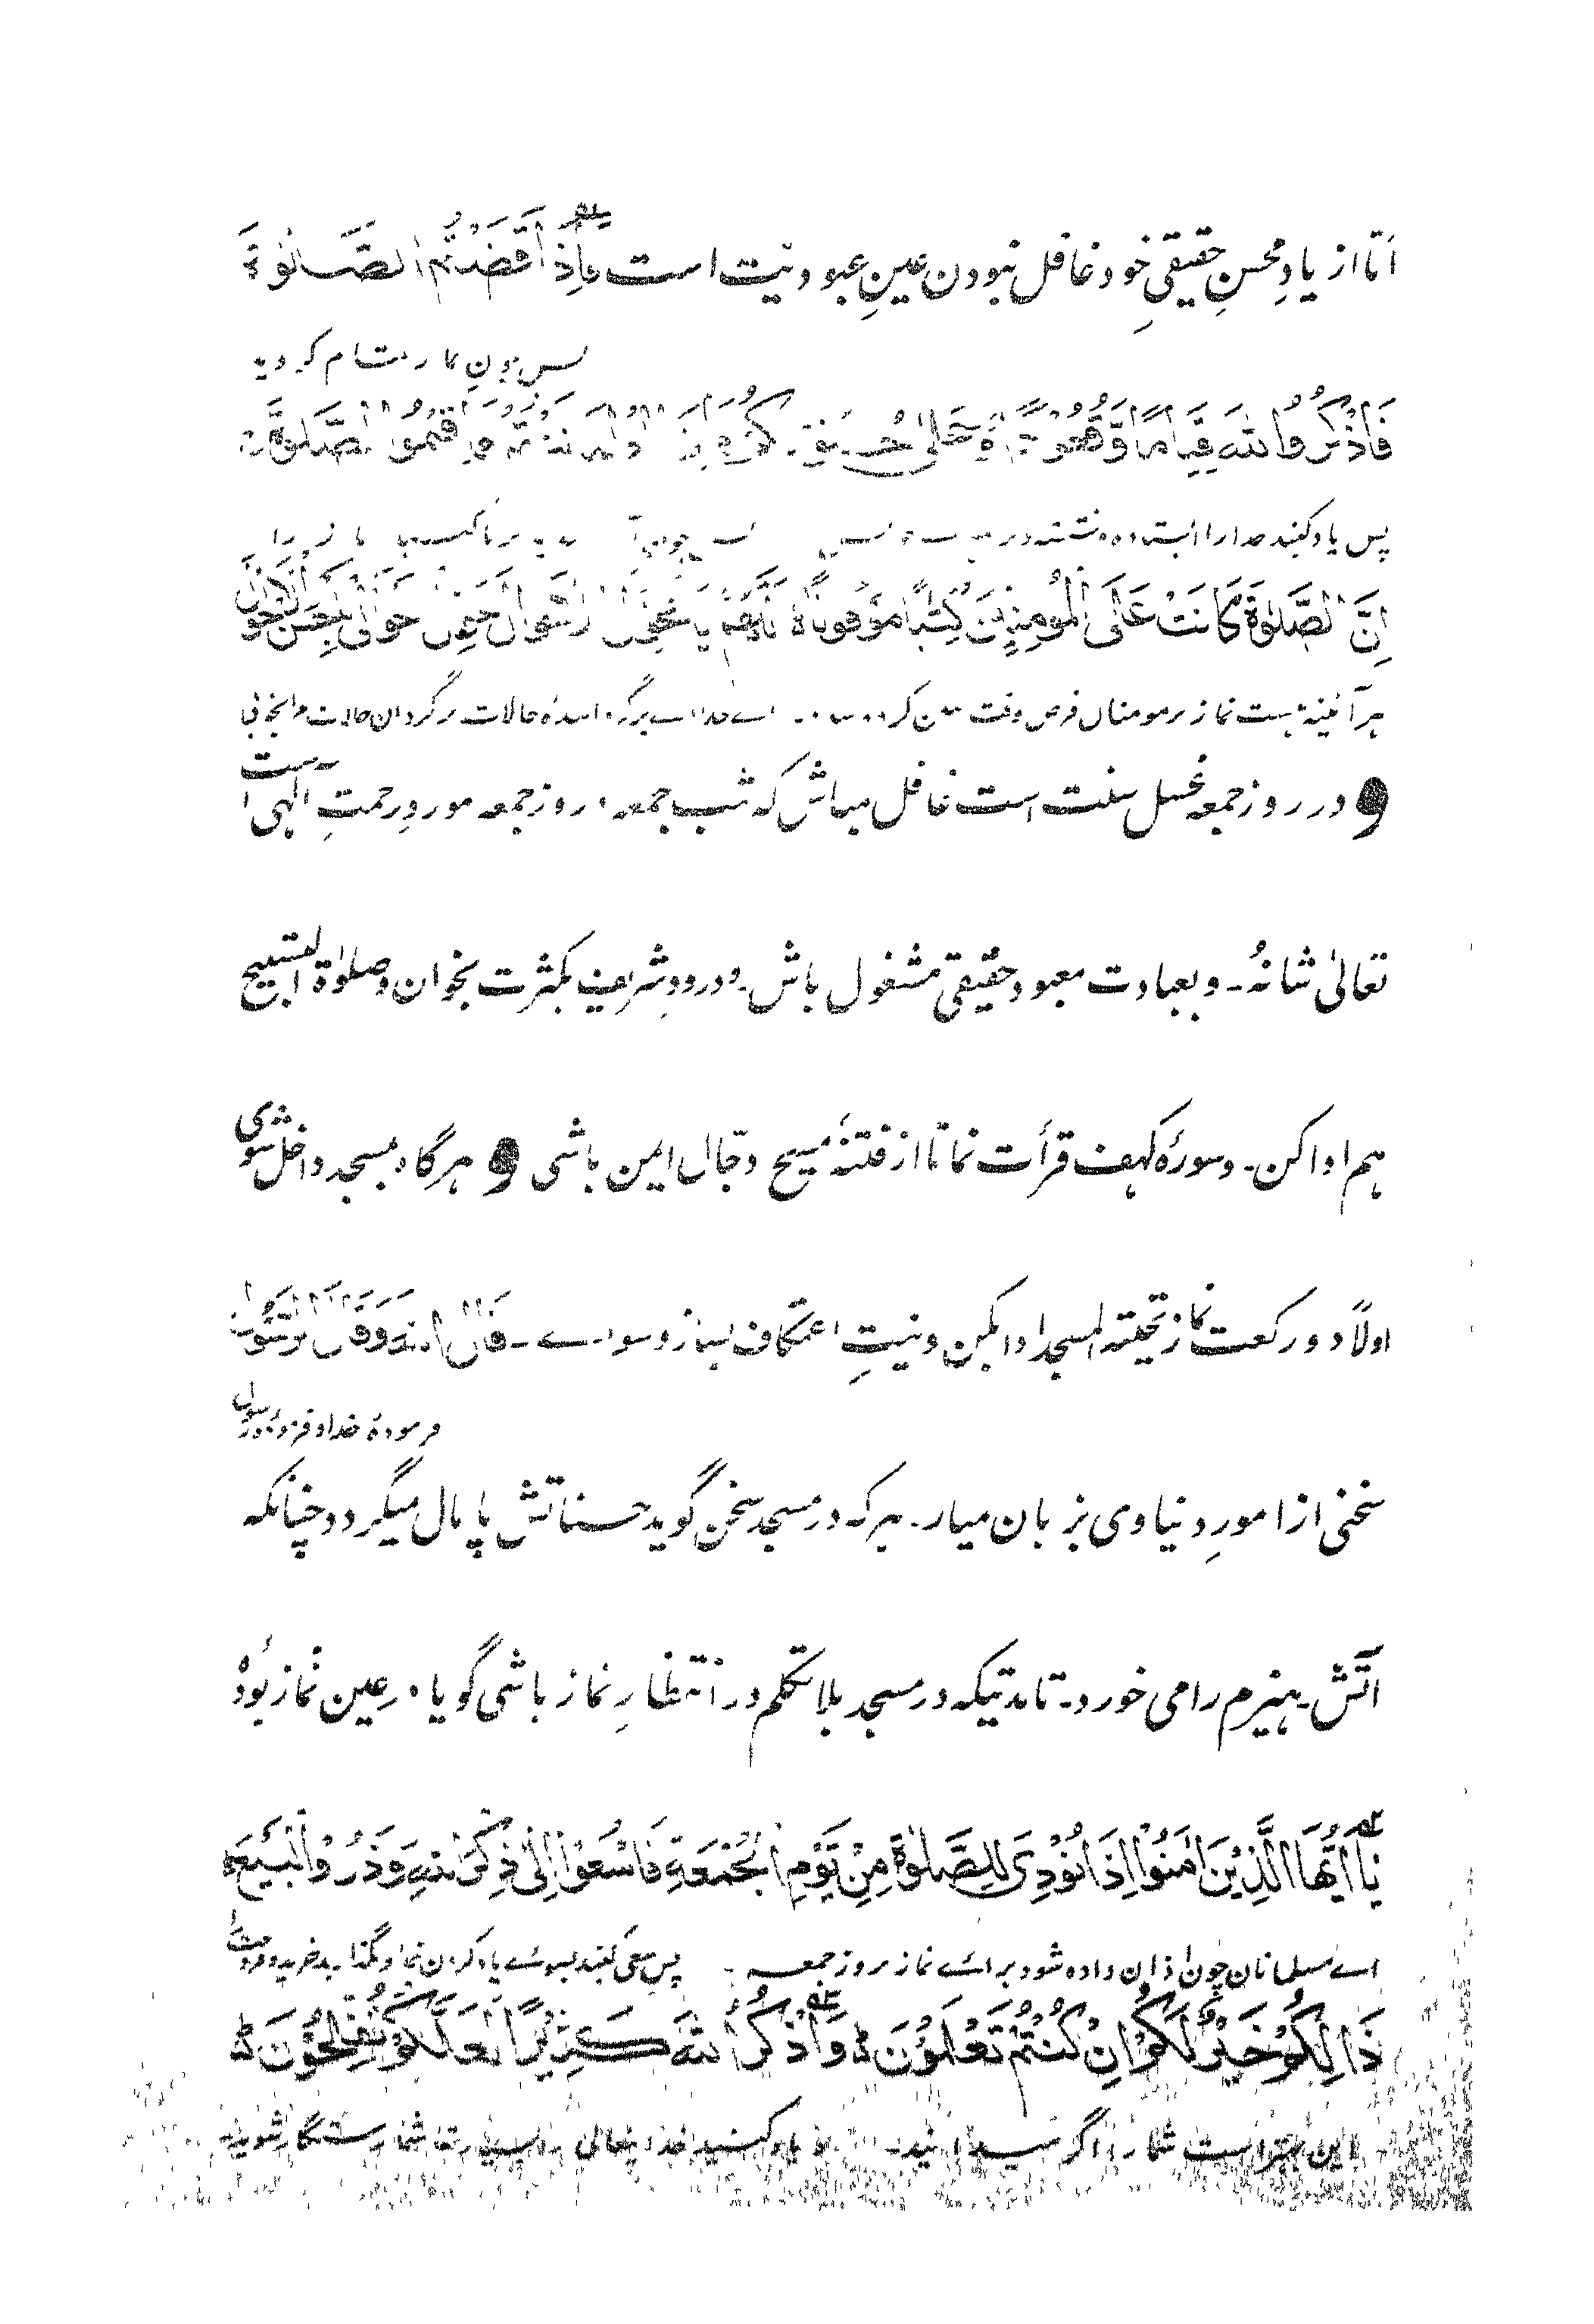 اما از یادِ محسنِ حقیقیِ خود غافل نبودن عینِ عبودیّت است فَاِذَا قَضَیْتُمُ الصَّلٰوةَ
پس چون نماز تمام کردید
فَاذْکُرُوا اللّٰهَ قِیَامًا وَّقُعُوْدًا وَّعَلٰی جُنُوْبِکُمْ فَاِذَا اطْمَاْنَنْتُمْ فَاَقِیْمُوا الصَّلٰوةَ
پس یاد کنید خدا را ایستاده و نشسته و بر نماز را
اِنَّ الصَّلٰوةَ کَانَتْ عَلَی الْمُؤْمِنِیْنَ کِتٰبًا مَّوْقُوْتًا اَللّٰهُمَّ یَا مُحَوِّلَ الْاَحْوَالِ حَوِّلْ حَوَالِیْ بِحُسْنِ الْاَحْوَالِ
هر آئینه هست نماز بر مومنان فرض وقت اے خدا اے برگرداننده حالات برگردان حالات مرا بخوبی
و در روز جمعه غسل سنت است غافل مباش که شب جمعه و روز جمعه موردِ رحمتِ الٰهی است
تعالیٰ شانهُ۔ و بعبادت معبود حقیقی مشغول باش۔ و درود شریف بکثرت بخوان و صلوٰة التسبیح
هم ادا کن۔ و سورهٔ کهف قرأت نما تا از فتنهٔ مسیح دجّال ایمن باشی و هرگاه بمسجد داخل شوی
اولاً دو رکعت نماز تحیته المسجد ادا بکن و نیتِ اعتکاف بنما و سوائے۔ قَالَ اللّٰهُ وَ قَالَ الرَّسُوْل
فرمودهٔ خدا و فرمودهٔ رسول
سخنی از امورِ دنیاوی بز بان میار۔ هر که در مسجد سخن گوید حسناتش پا مال میگردد چنانکه
آتش هیزم را می خورد۔ تا مدتیکه در مسجد بلا تکلم در انتظارِ نماز باشی گویا در عین نماز بُودهٔ
یٰاَیُّهَا الَّذِیْنَ اٰمَنُوْا اِذَا نُوْدِیَ لِلصَّلٰوةِ مِنْ یَّوْمِ الْجُمُعَةِ فَاسْعَوْا اِلٰی ذِکْرِ اللّٰهِ وَذَرُوْا الْبَیْعَ
اے مسلمانان چون اذان داده شود برائے نماز بروز جمعه۔ پس سعی کنید بسوئے یاد کردن خدا و بگذارید خرید و فروخت
ذَالِکُمْ خَیْرٌ لَّکُمْ اِنْ کُنْتُمْ تَعْلَمُوْنَ وَاذْکُرُ اللّٰهَ کَثِیْرًا لَّعَلَّکُمْ تُفْلِحُوْنَ
این بهتر است شما را اگر میدانید۔ و یاد کنید خدا تعالی را تا شما رستگار شوید